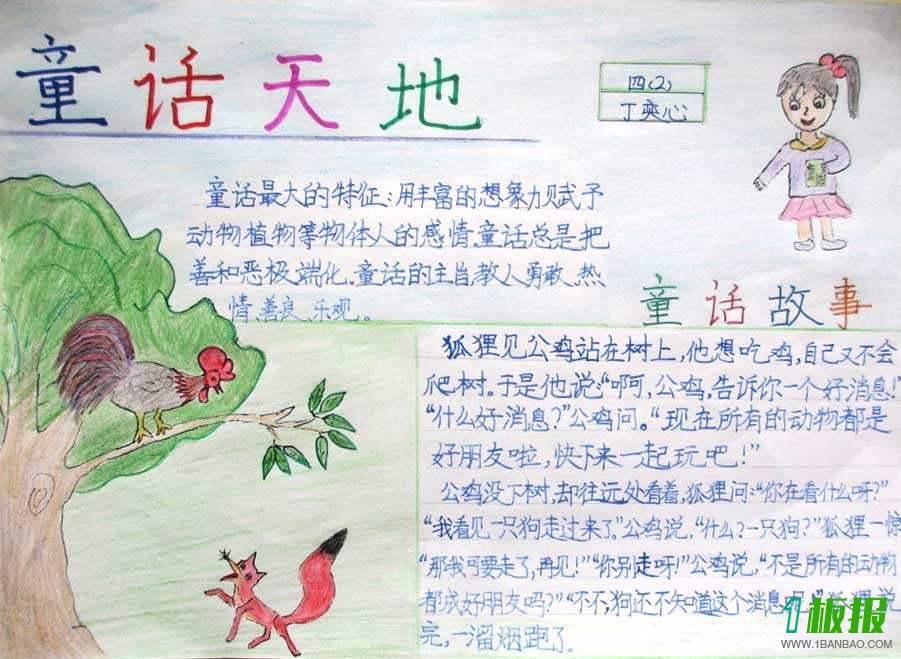 童话天地
四(2)
丁奕心
童话最大的特征:用丰富的想象力赋予
动物植物等物体人的感情,童话总是把
善和恶极端化。童话的主旨,教人勇敢、热
情、善良、乐观。
童话故事
狐狸见公鸡站在树上,他想吃鸡,自己又不会
爬树。于是他说:“啊,公鸡,告诉你一个好消息!”
“什么好消息?”公鸡问。“现在所有的动物都是
好朋友啦,快下来一起玩吧!”
公鸡没下树,却往远处看着,狐狸问:“你在看什么呀?”
“我看见一只狗走过来了。”公鸡说,“什么?一只狗?”狐狸一惊
“那我可要走了,再见!”“你别走呀!”公鸡说,“不是所有的动物
都成好朋友吗?”“不不,狗还不知道这个消息 狐狸说
完,一溜烟跑了。
1板报
WWW.1BANBAO.COM